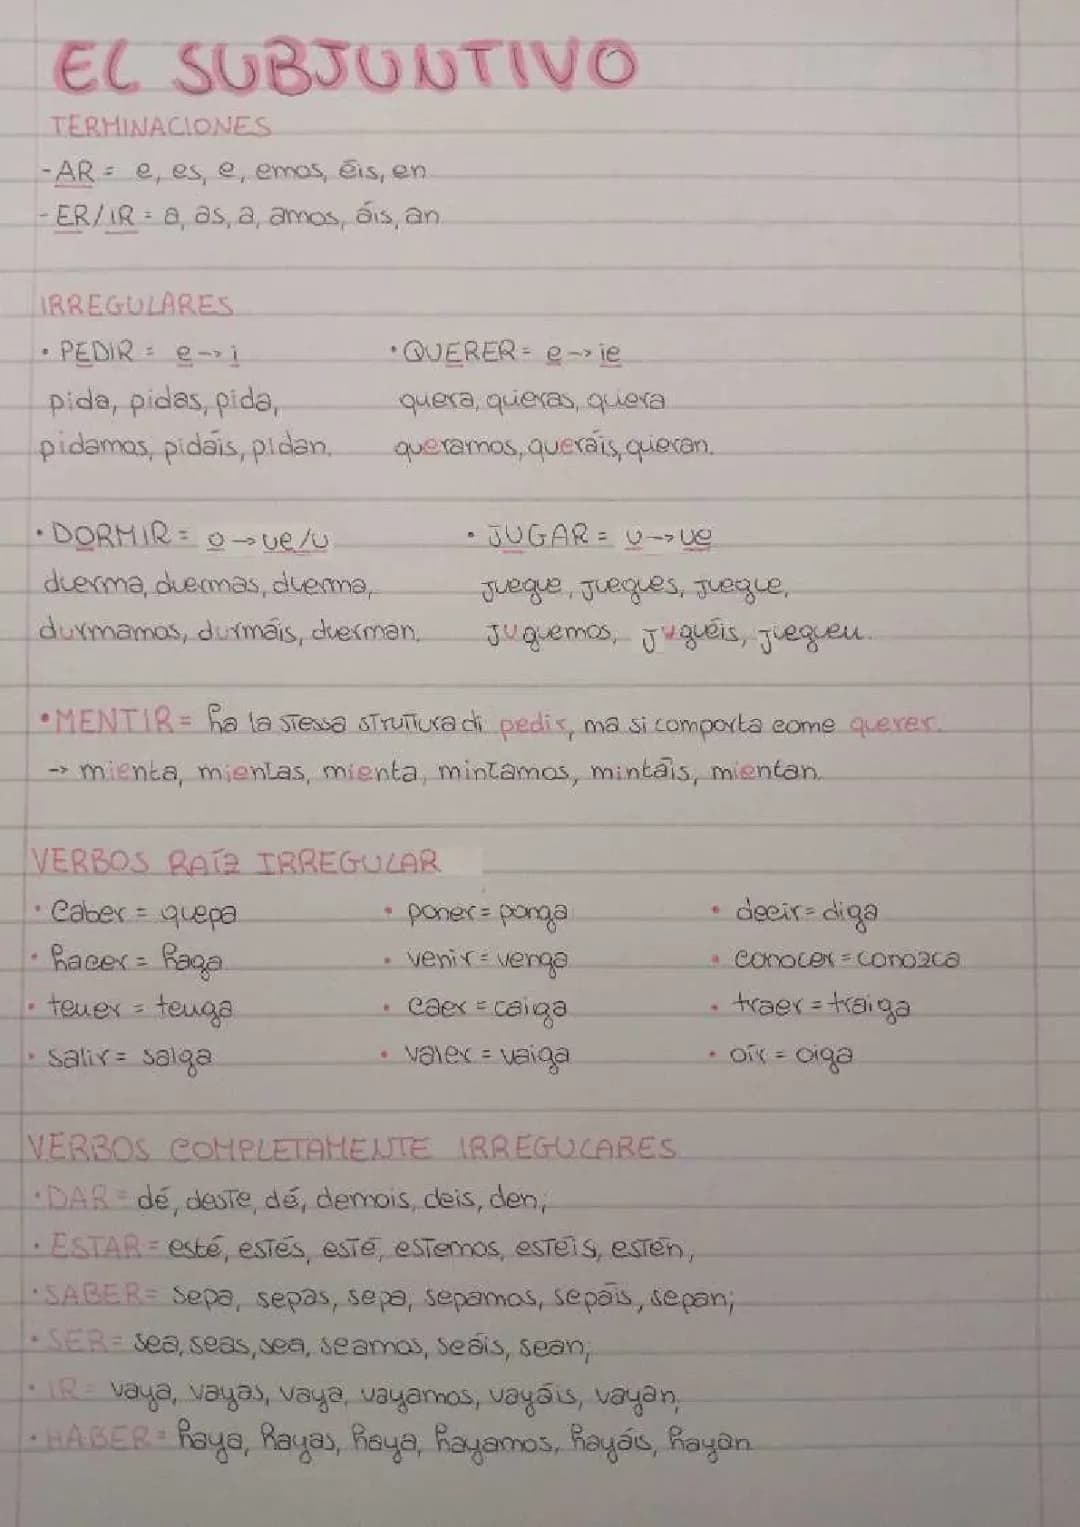 EL SUBJUNTIVO
TERMINACIONES
-AR = e, es, e, emos, éis, en
-ER/IR = a, as, a, amos, áis, an
IRREGULARES
• PEDIR = e→i
pida, pidas, pida,
pidamos, pidáis, pidan.
• QUERER = e→ie
quera, quieras, quiera
queramos, queráis, quieran.
• DORMIR = o→ue/u
duerma, duermas, duerma,
durmamos, durmáis, duerman.
• JUGAR = u→ue
juegue, juegues, juegue,
juguemos, juguéis, jueguen.
• MENTIR = ha la stessa struttura di pedir, ma si comporta come querer.
→ mienta, mientas, mienta, mintamos, mintáis, mientan.
VERBOS RAÍZ IRREGULAR
• caber = quepa
• poner = ponga
• decir = diga
• hacer = haga
• venir = venga
• conocer = conozca
• tener = tenga
• caer = caiga
• traer = traiga
• salir = salga
• valer = vaiga
• oír = oiga
VERBOS COMPLETAMENTE IRREGULARES
• DAR = dé, deste, dé, demois, deis, den;
• ESTAR = esté, estés, esté, estemos, estéis, estén,
• SABER = sepa, sepas, sepa, sepamos, sepáis, sepan;
• SER = sea, seas, sea, seamos, seáis, sean;
• IR = vaya, vayas, vaya, vayamos, vayáis, vayan,
• HABER = haya, hayas, haya, hayamos, hayáis, hayan